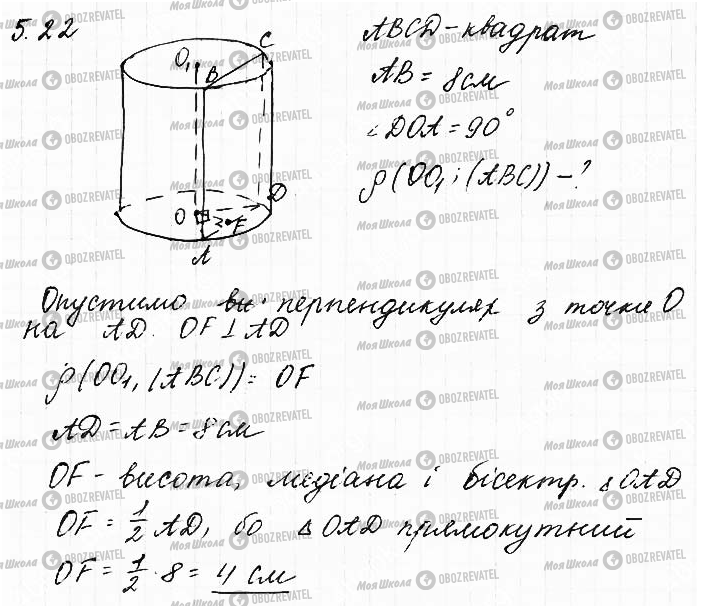 5.22
ABCD - квадрат
AB = 8 см
∠DOA = 90°
ρ(OO₁; (ABC)) - ?
C
O₁
B
D
O
F
A
Опустимо перпендикуляр з точки O
на AD. OF ⊥ AD
ρ(OO₁, (ABC)) = OF
AD = AB = 8 см
OF - висота, медіана і бісектр. △OAD
OF = 1/2 AD, бо △OAD прямокутний
OF = 1/2 · 8 = 4 см
МояШкола OBOZREVATEL